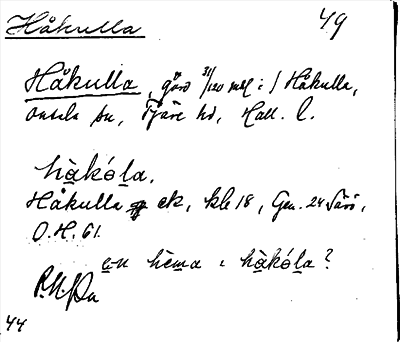 Håkulla 49
Håkulla, gård 31/120 mtl i / Håkulla,
Onsala sn, Fjäre hd, Hall. l.
hàkóla.
Håkulla ek, kbl 18, Gen. 24 Särö,
O.H. 61.
a-u hèma i hàkóla?
44